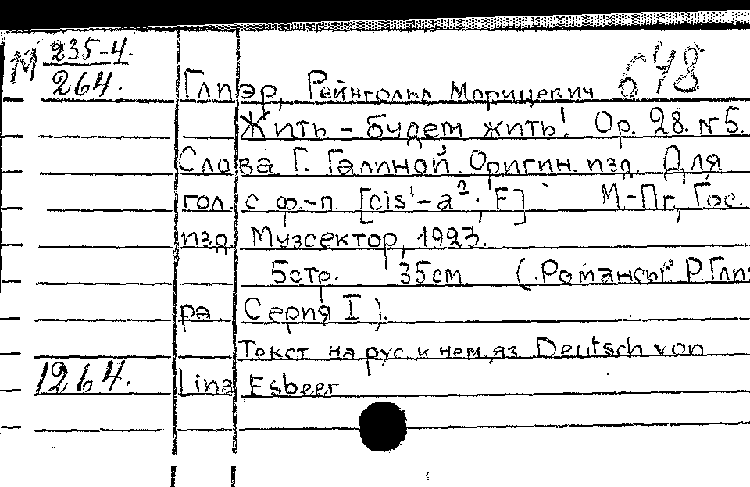 М 235-4. 648
264. Глиэр, Рейнгольд Морицевич
Жить - будем жить! Op. 28. № 5.
Слова Г. Галиной. Оригин. изд. Для
гол. с ф-п [cis¹-a²; F] М-Пг, Гос.
изд. Музсектор, 1923.
5 стр. 35 см. ("Романсы" Р. Глиэ
ра. Серия I).
Текст на рус. и нем. яз. Deutsch von
1264. Lina Esbeer